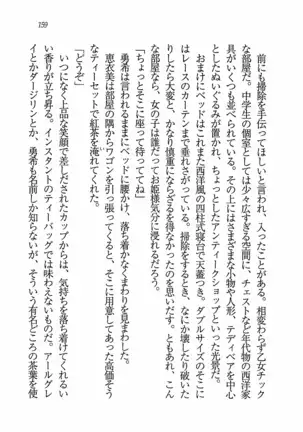 159
前にも掃除を手伝ってほしいと言われ、入ったことがある。相変わらず乙女チック
な部屋だ。中学生の個室としては少々広すぎる空間に、チェストなど年代物の西洋家
具がいくつも並べられている。その上にはさまざまな小物や人形、テディベアを中心
としたぬいぐるみが飾られ、ちょっとしたアンティークショップといった光景だ。
おまけにベッドはこれまた西洋風の四柱式寝台で天蓋つき。ダブルサイズのそこに
はレースのカーテンまで垂れさがっている。掃除をするとき、なにか壊したり破った
りしたら大変と、かなり慎重にならざるを得なかったのを思いだす。もっともあれ、こん
な部屋なら、女の子は誰だってお姫様気分に浸れるだろう。
「ちょっとそこに座って待っててね」
勇希は言われるままにベッドに腰かけ、落ち着かなくまわりを見まわした。
恵衣美は部屋の隅からワゴンを引っ張ってくると、そこに用意してあった高価そう
なティーセットで紅茶を淹れてくれた。
「どうぞ」
いつになく上品な笑顔で差しだされたカップからは、気持ちを落ち着けてくれるい
い香りが立ち昇る。インスタントのティーバッグでは味わえないものだ。アールグレ
イとかダージリンとか、勇希も名前しか知らないが、そういう有名どころの茶葉を使